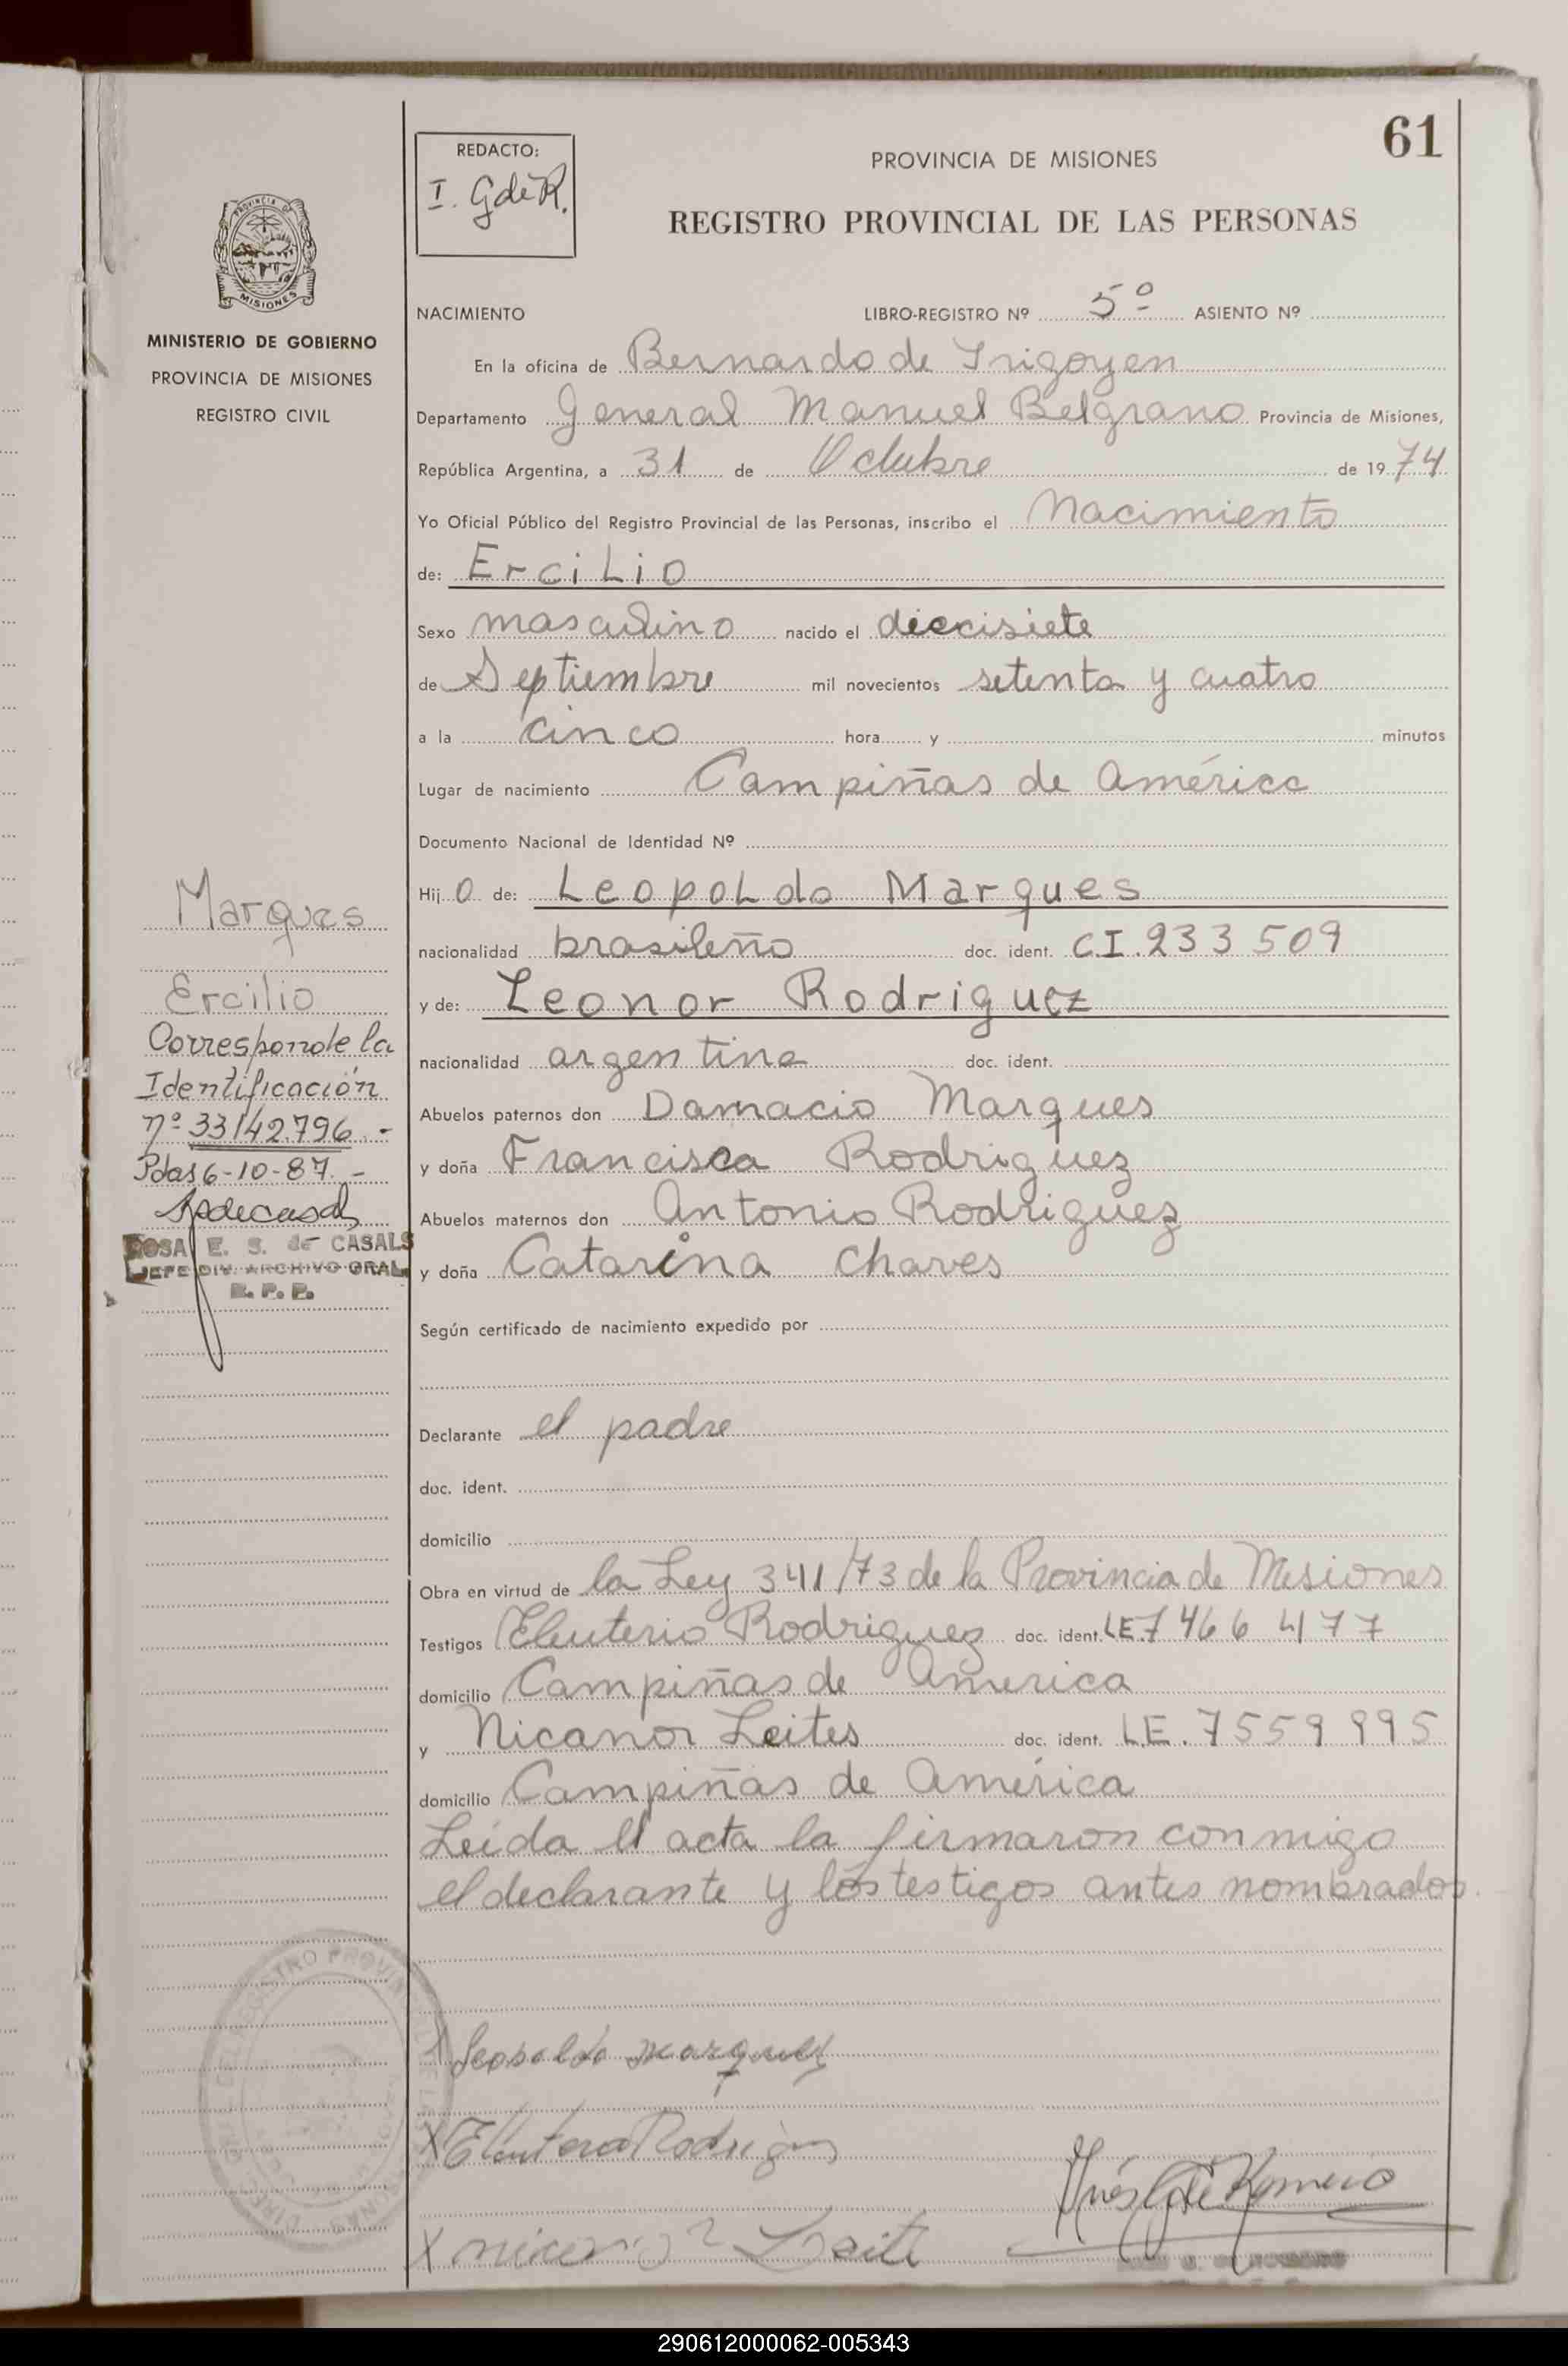 61
REDACTO:
I. GdeR.
PROVINCIA DE MISIONES
REGISTRO PROVINCIAL DE LAS PERSONAS
PROVINCIA DE
MISIONES
MINISTERIO DE GOBIERNO
PROVINCIA DE MISIONES
REGISTRO CIVIL
NACIMIENTO LIBRO-REGISTRO Nº 5º ASIENTO Nº
En la oficina de Bernardo de Irigoyen
Departamento General Manuel Belgrano Provincia de Misiones,
República Argentina, a 31 de Octubre de 1974
Yo Oficial Público del Registro Provincial de las Personas, inscribo el Nacimiento
de: Ercilio
Sexo masculino nacido el diecisiete
de Septiembre mil novecientos setenta y cuatro
a la cinco hora y minutos
Lugar de nacimiento Campiñas de América
Documento Nacional de Identidad Nº
Hijo de: Leopoldo Marques
nacionalidad brasileño doc. ident. C.I. 233 509
y de: Leonor Rodriguez
nacionalidad argentina doc. ident.
Abuelos paternos don Damacio Marques
y doña Francisca Rodriguez
Abuelos maternos don Antonio Rodriguez
y doña Catarina Chaves
Según certificado de nacimiento expedido por
Declarante el padre
doc. ident.
domicilio
Obra en virtud de la Ley 341/73 de la Provincia de Misiones
Testigos Eleuterio Rodriguez doc. ident. LE. 7 466 477
domicilio Campiñas de America
y Nicanor Leites doc. ident. LE. 7559995
domicilio Campiñas de América
Leída el acta la firmaron conmigo
el declarante y los testigos antes nombrados.
Marques
Ercilio
Corresponde la
Identificación
nº 33142.796.-
Pdas 6-10-87.-
ROSA E. S. de CASALS
JEFE DIV. ARCHIVO GRAL.
R. P. P.
Leopoldo Marques
X Eleuterio Rodrigues
X nicanor Leite
290612000062-005343